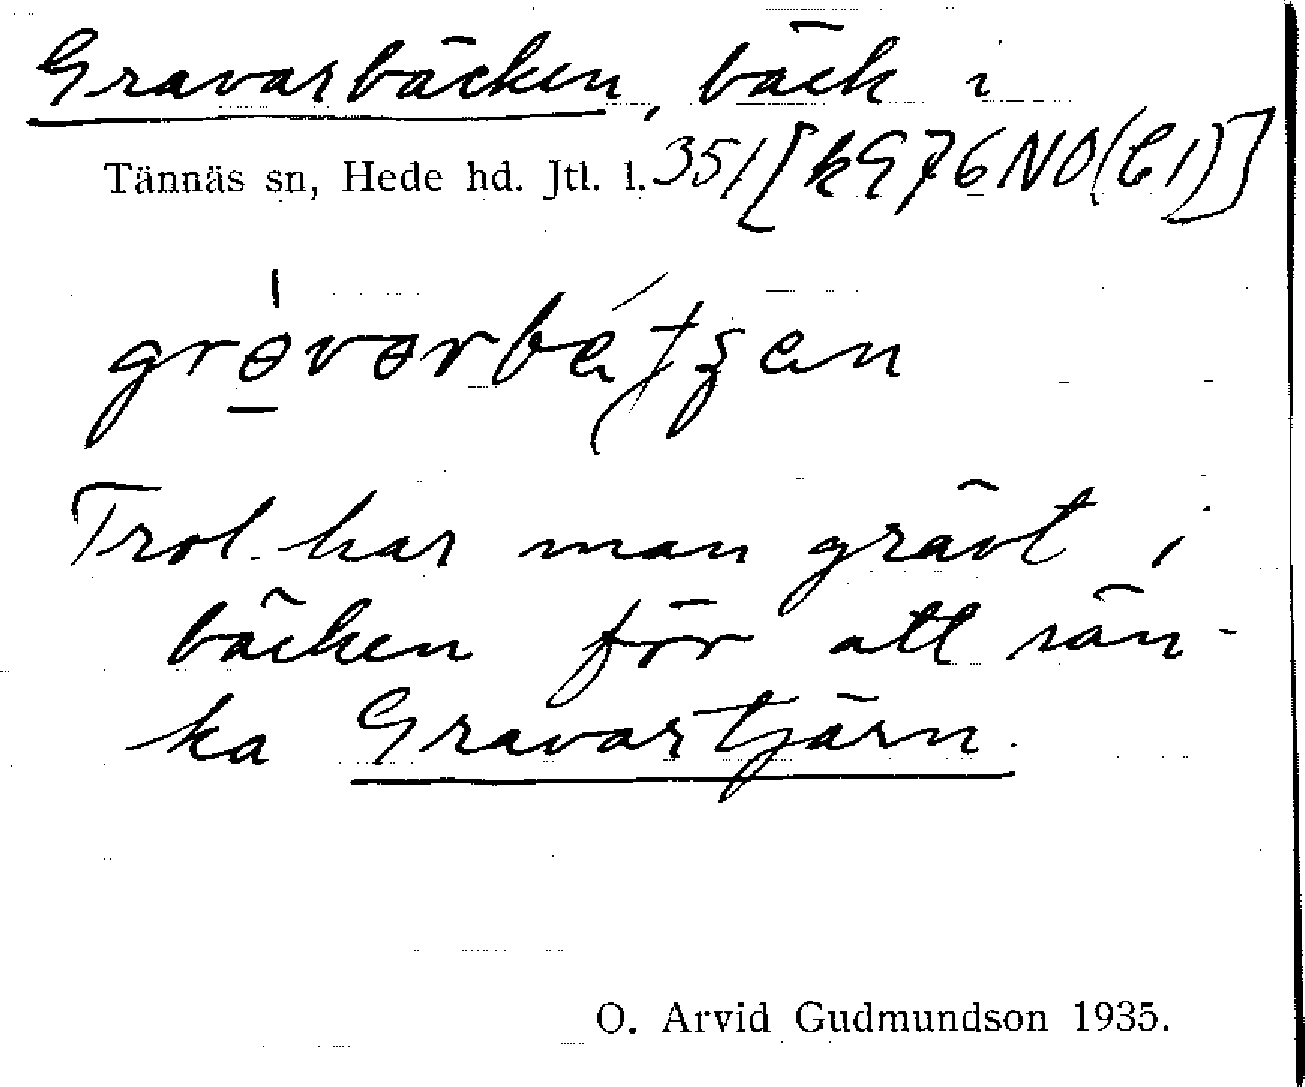 Gravarbäcken, bäck i
Tännäs sn, Hede hd. Jtl. l. 351 [k976NO(C1)]
Trol. har man grävt i
bäcken för att sän-
ka Gravartjärn.
O. Arvid Gudmundson 1935.